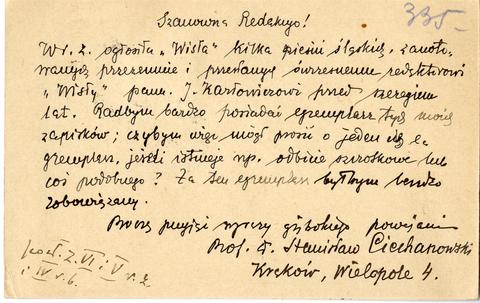 335.
Szanowna Redakcyo!
W r. z. ogłosiła „Wisła” kilka pieśni śląskich, zanoto-
wanych przezemnie i przesłanych ówczesnemu redaktorowi
„Wisły” panu J. Karłowiczowi przed szeregiem
lat. Radbym bardzo posiadać egzemplarz tych moich
zapisków; czybym więc mógł prosić o jeden eg-
zemplarz, jeżeli istnieje np. odbicie szczotkowe lub
coś podobnego? Za ten egzemplarz byłbym bardzo
zobowiązany.
Proszę przyjąć wyrazy głębokiego poważania
Prof. Dr. Stanisław Ciechanowski
Kraków, Wielopole 4.
z. VI i V r. z.
i IV r. b.